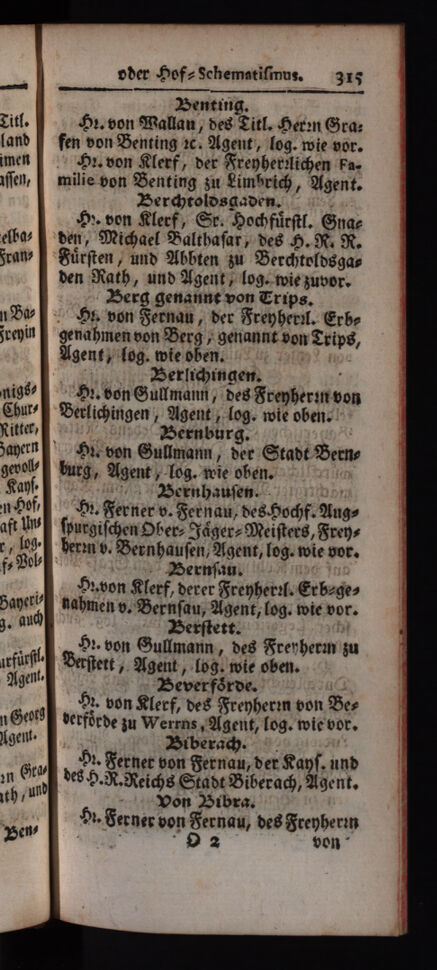 oder Hof-Schematismus. 315
Benting.
Hr. von Wallau, des Titl. Herrn Gra-
fen von Benting ꝛc. Agent, log. wie vor.
Hr. von Klerf, der Freyherrlichen Fa-
milie von Benting zu Limbrich, Agent.
Berchtoldsgaden.
Hr. von Klerf, Sr. Hochfürstl. Gna-
den, Michael Balthasar, des H. R. R.
Fürsten, und Abbten zu Berchtoldsga-
den Rath, und Agent, log. wie zuvor.
Berg genannt von Trips.
Hr. von Fernau, der Freyherrl. Erb-
genahmen von Berg, genannt von Trips,
Agent, log. wie oben.
Berlichingen.
Hr. von Gullmann, des Freyherrn von
Berlichingen, Agent, log. wie oben.
Bernburg.
Hr. von Gullmann, der Stadt Bern-
burg, Agent, log. wie oben.
Bernhausen.
Hr. Ferner v. Fernau, des Hochf. Aug-
spurgischen Ober-Jäger-Meisters, Frey-
herrn v. Bernhausen, Agent, log. wie vor.
Bernsau.
Hr. von Klerf, derer Freyherrl. Erb-ge-
nahmen v. Bernsau, Agent, log. wie vor.
Berstett.
Hr. von Gullmann, des Freyherrn zu
Berstett, Agent, log. wie oben.
Beverförde.
Hr. von Klerf, des Freyherrn von Be-
verförde zu Werrns, Agent, log. wie vor.
Biberach.
Hr. Ferner von Fernau, der Kays. und
des H. R. Reichs Stadt Biberach, Agent.
Von Bibra.
Hr. Ferner von Fernau, des Freyherrn
O 2 von
Titl.
land
assen,
Freyin
Chur-
Ritter,
Bayern
gevoll-
Kays.
Hof,
log.
Bayeri-
auch
Agent.
Georg
Agent.
Gra-
und
Ben-